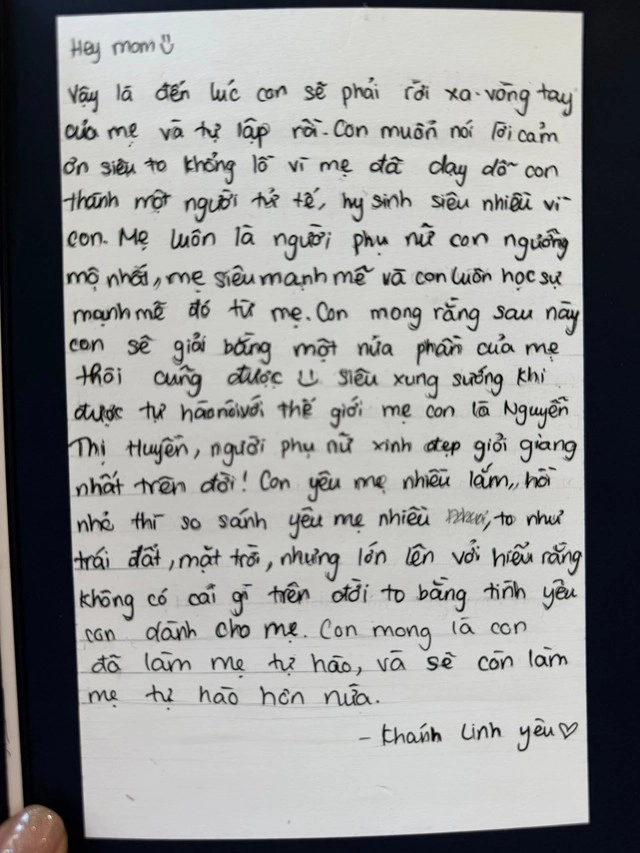 Hey mom
Vậy là đến lúc con sẽ phải rời xa vòng tay
của mẹ và tự lập rồi. Con muốn nói lời cảm
ơn siêu to khổng lồ vì mẹ đã dạy dỗ con
thành một người tử tế, hy sinh siêu nhiều vì
con. Mẹ luôn là người phụ nữ con ngưỡng
mộ nhất, mẹ siêu mạnh mẽ và con luôn học sự
mạnh mẽ đó từ mẹ. Con mong rằng sau này
con sẽ giỏi bằng một nửa phần của mẹ
thôi cũng được siêu xung sướng khi
được tự hào nói với thế giới mẹ con là Nguyễn
Thị Huyền, người phụ nữ xinh đẹp giỏi giang
nhất trên đời! Con yêu mẹ nhiều lắm,, hồi
nhỏ thì so sánh yêu mẹ nhiều, to như
trái đất, mặt trời, nhưng lớn lên với hiểu rằng
không có cái gì trên đời to bằng tình yêu
con dành cho mẹ. Con mong là con
đã làm mẹ tự hào, và sẽ còn làm
mẹ tự hào hơn nữa.
- Khánh Linh yêu ♡